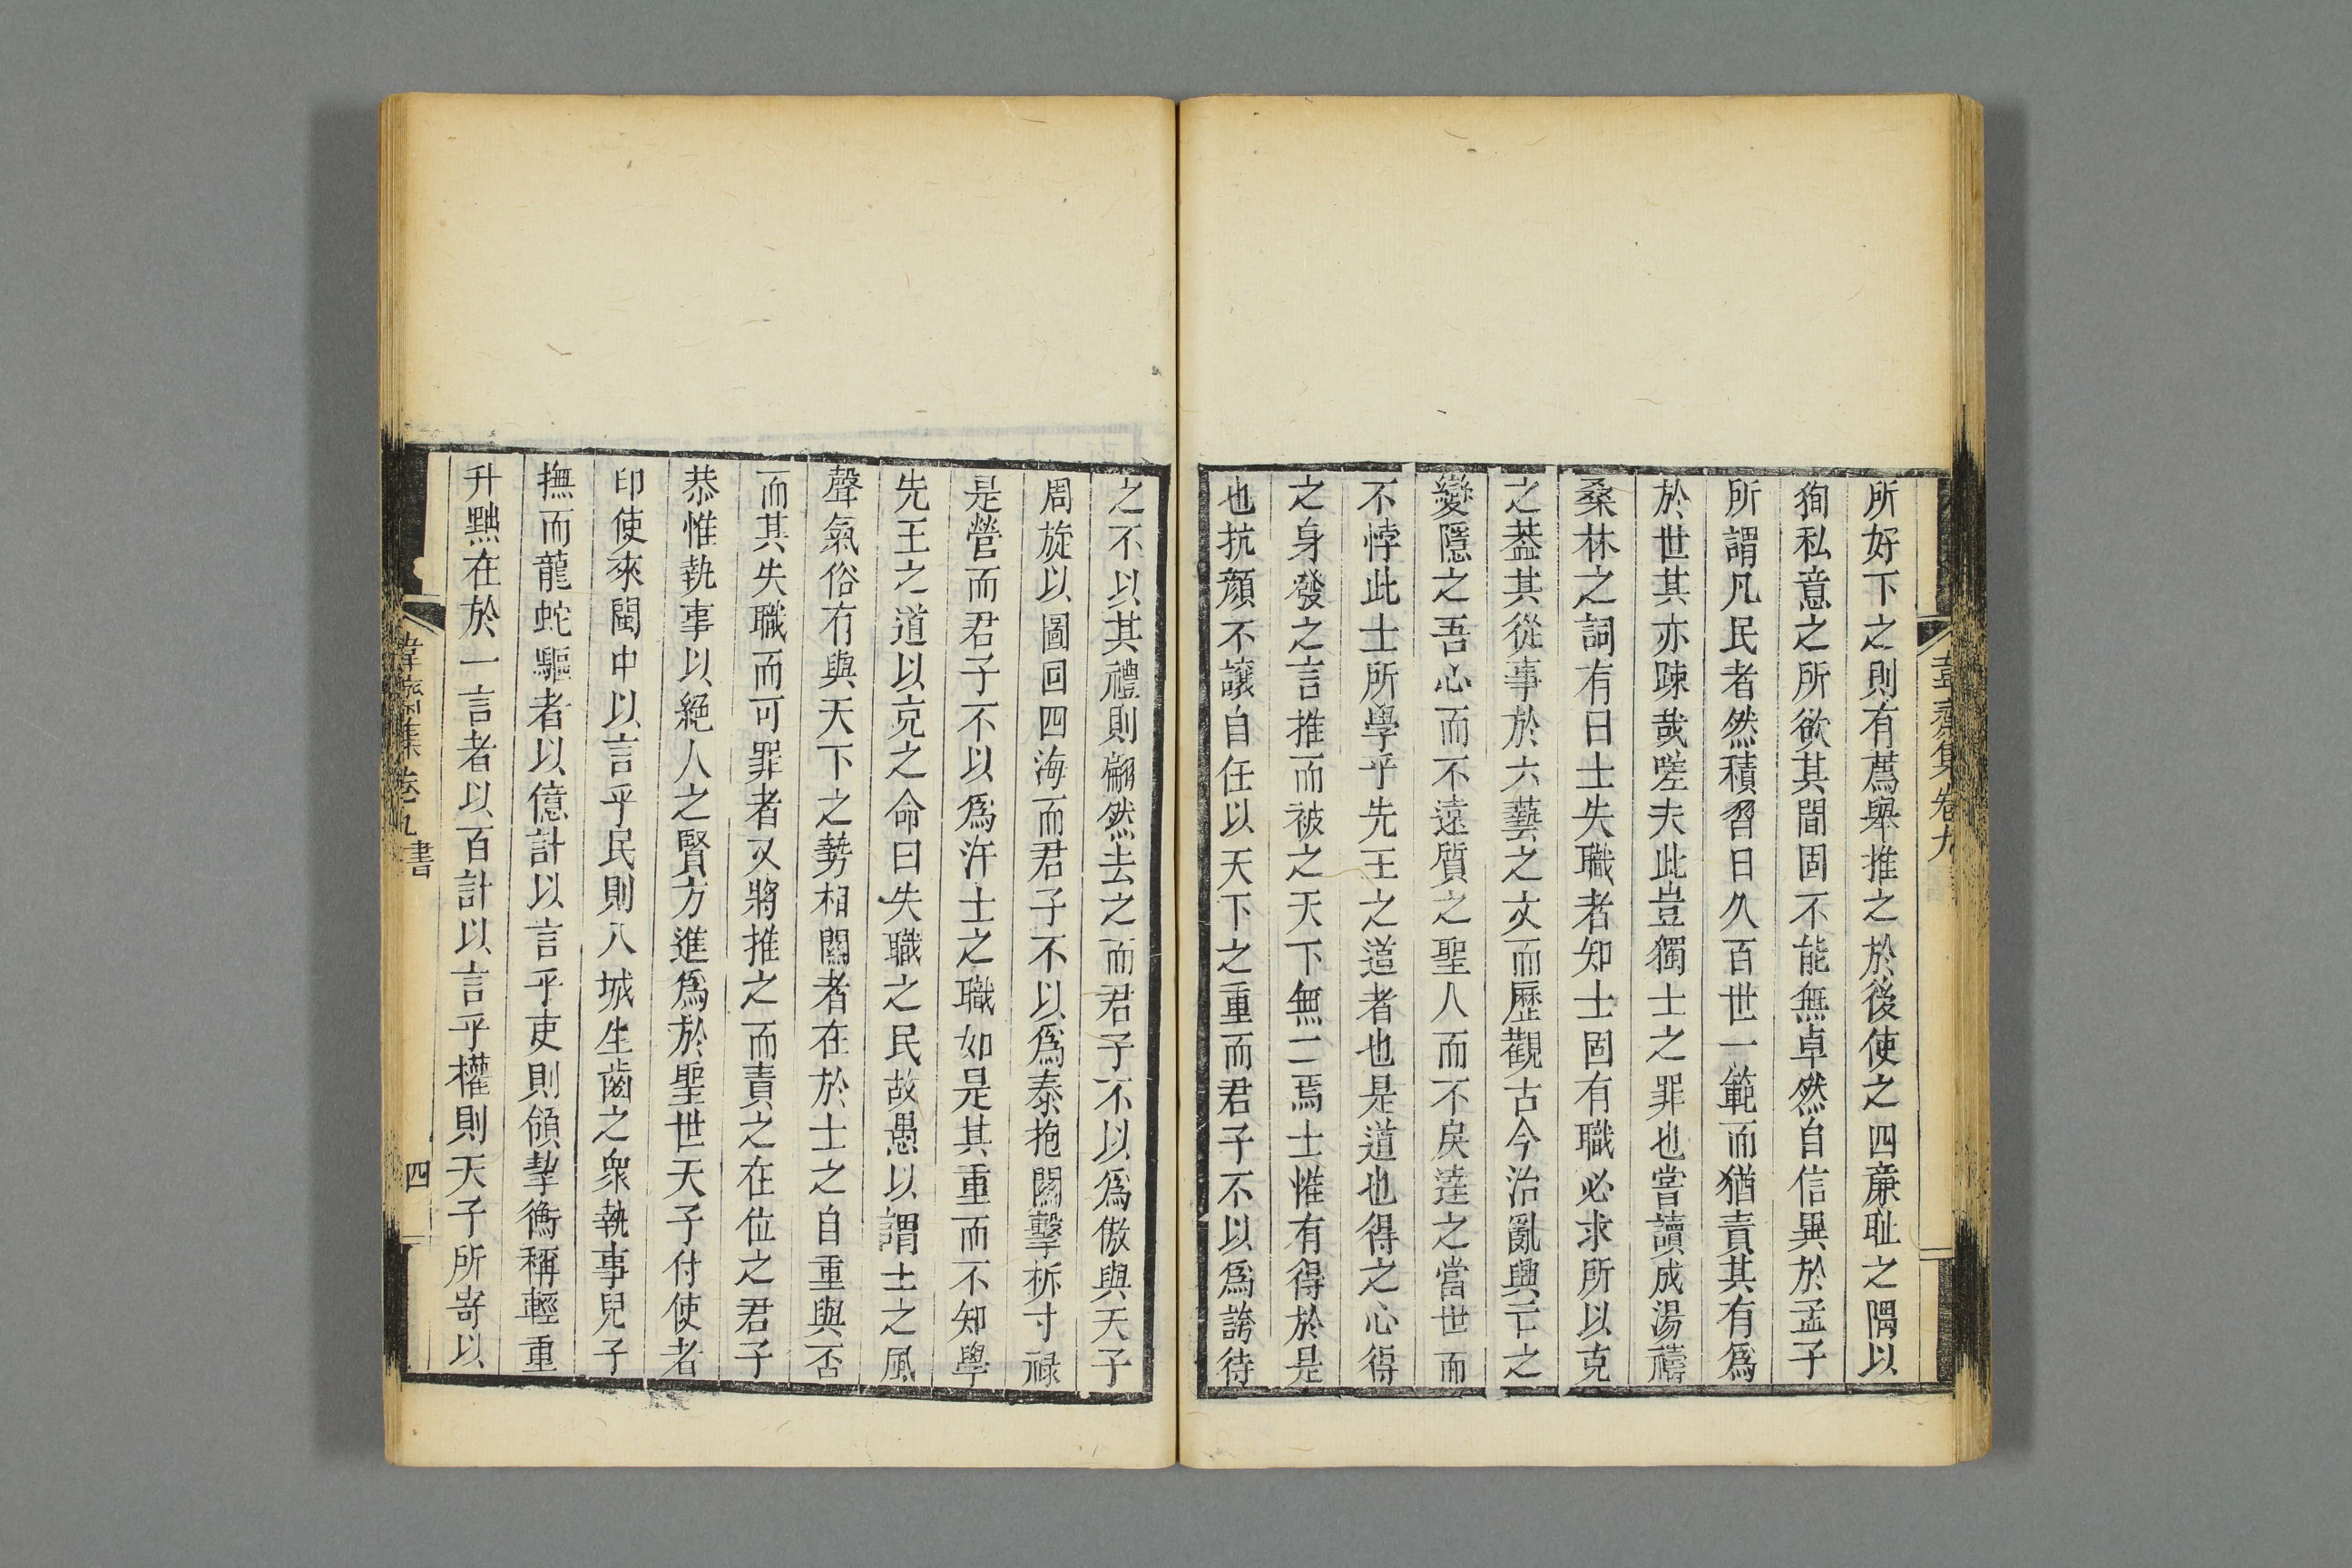 韋齋集卷九
所好下之則有薦舉推之於後使之四亷耻之隅以
狥私意之所欲其間固不能無卓然自信異於孟子
所謂凡民者然積習日久百世一範而猶責其有爲
於世其亦踈哉嗟夫此豈獨士之罪也嘗讀成湯禱
桑林之詞有曰士失職者知士固有職必求所以克
之葢其從事於六藝之文而歷觀古今治亂興亡之
變隱之吾心而不遠質之聖人而不戾逹之當世而
不悖此士所學乎先王之道者也是道也得之心得
之身發之言推而被之天下無二焉士惟有得於是
也抗顏不讓自任以天下之重而君子不以爲誇待
之不以其禮則翩然去之而君子不以爲傲與天子
周旋以圖回四海而君子不以爲泰抱關擊柝寸祿
是營而君子不以爲汙士之職如是其重而不知學
先王之道以克之命曰失職之民故愚以謂士之風
聲氣俗有與天下之勢相關者在於士之自重與否
而其失職而可罪者又將推之而責之在位之君子
恭惟執事以絶人之賢方進爲於聖世天子付使者
印使來閩中以言乎民則八城生齒之衆執事兒子
撫而龍蛇驅者以億計以言乎吏則頟挈衡稱輕重
升黜在於一言者以百計以言乎權則天子所寄以
韋齋集卷九 書 四